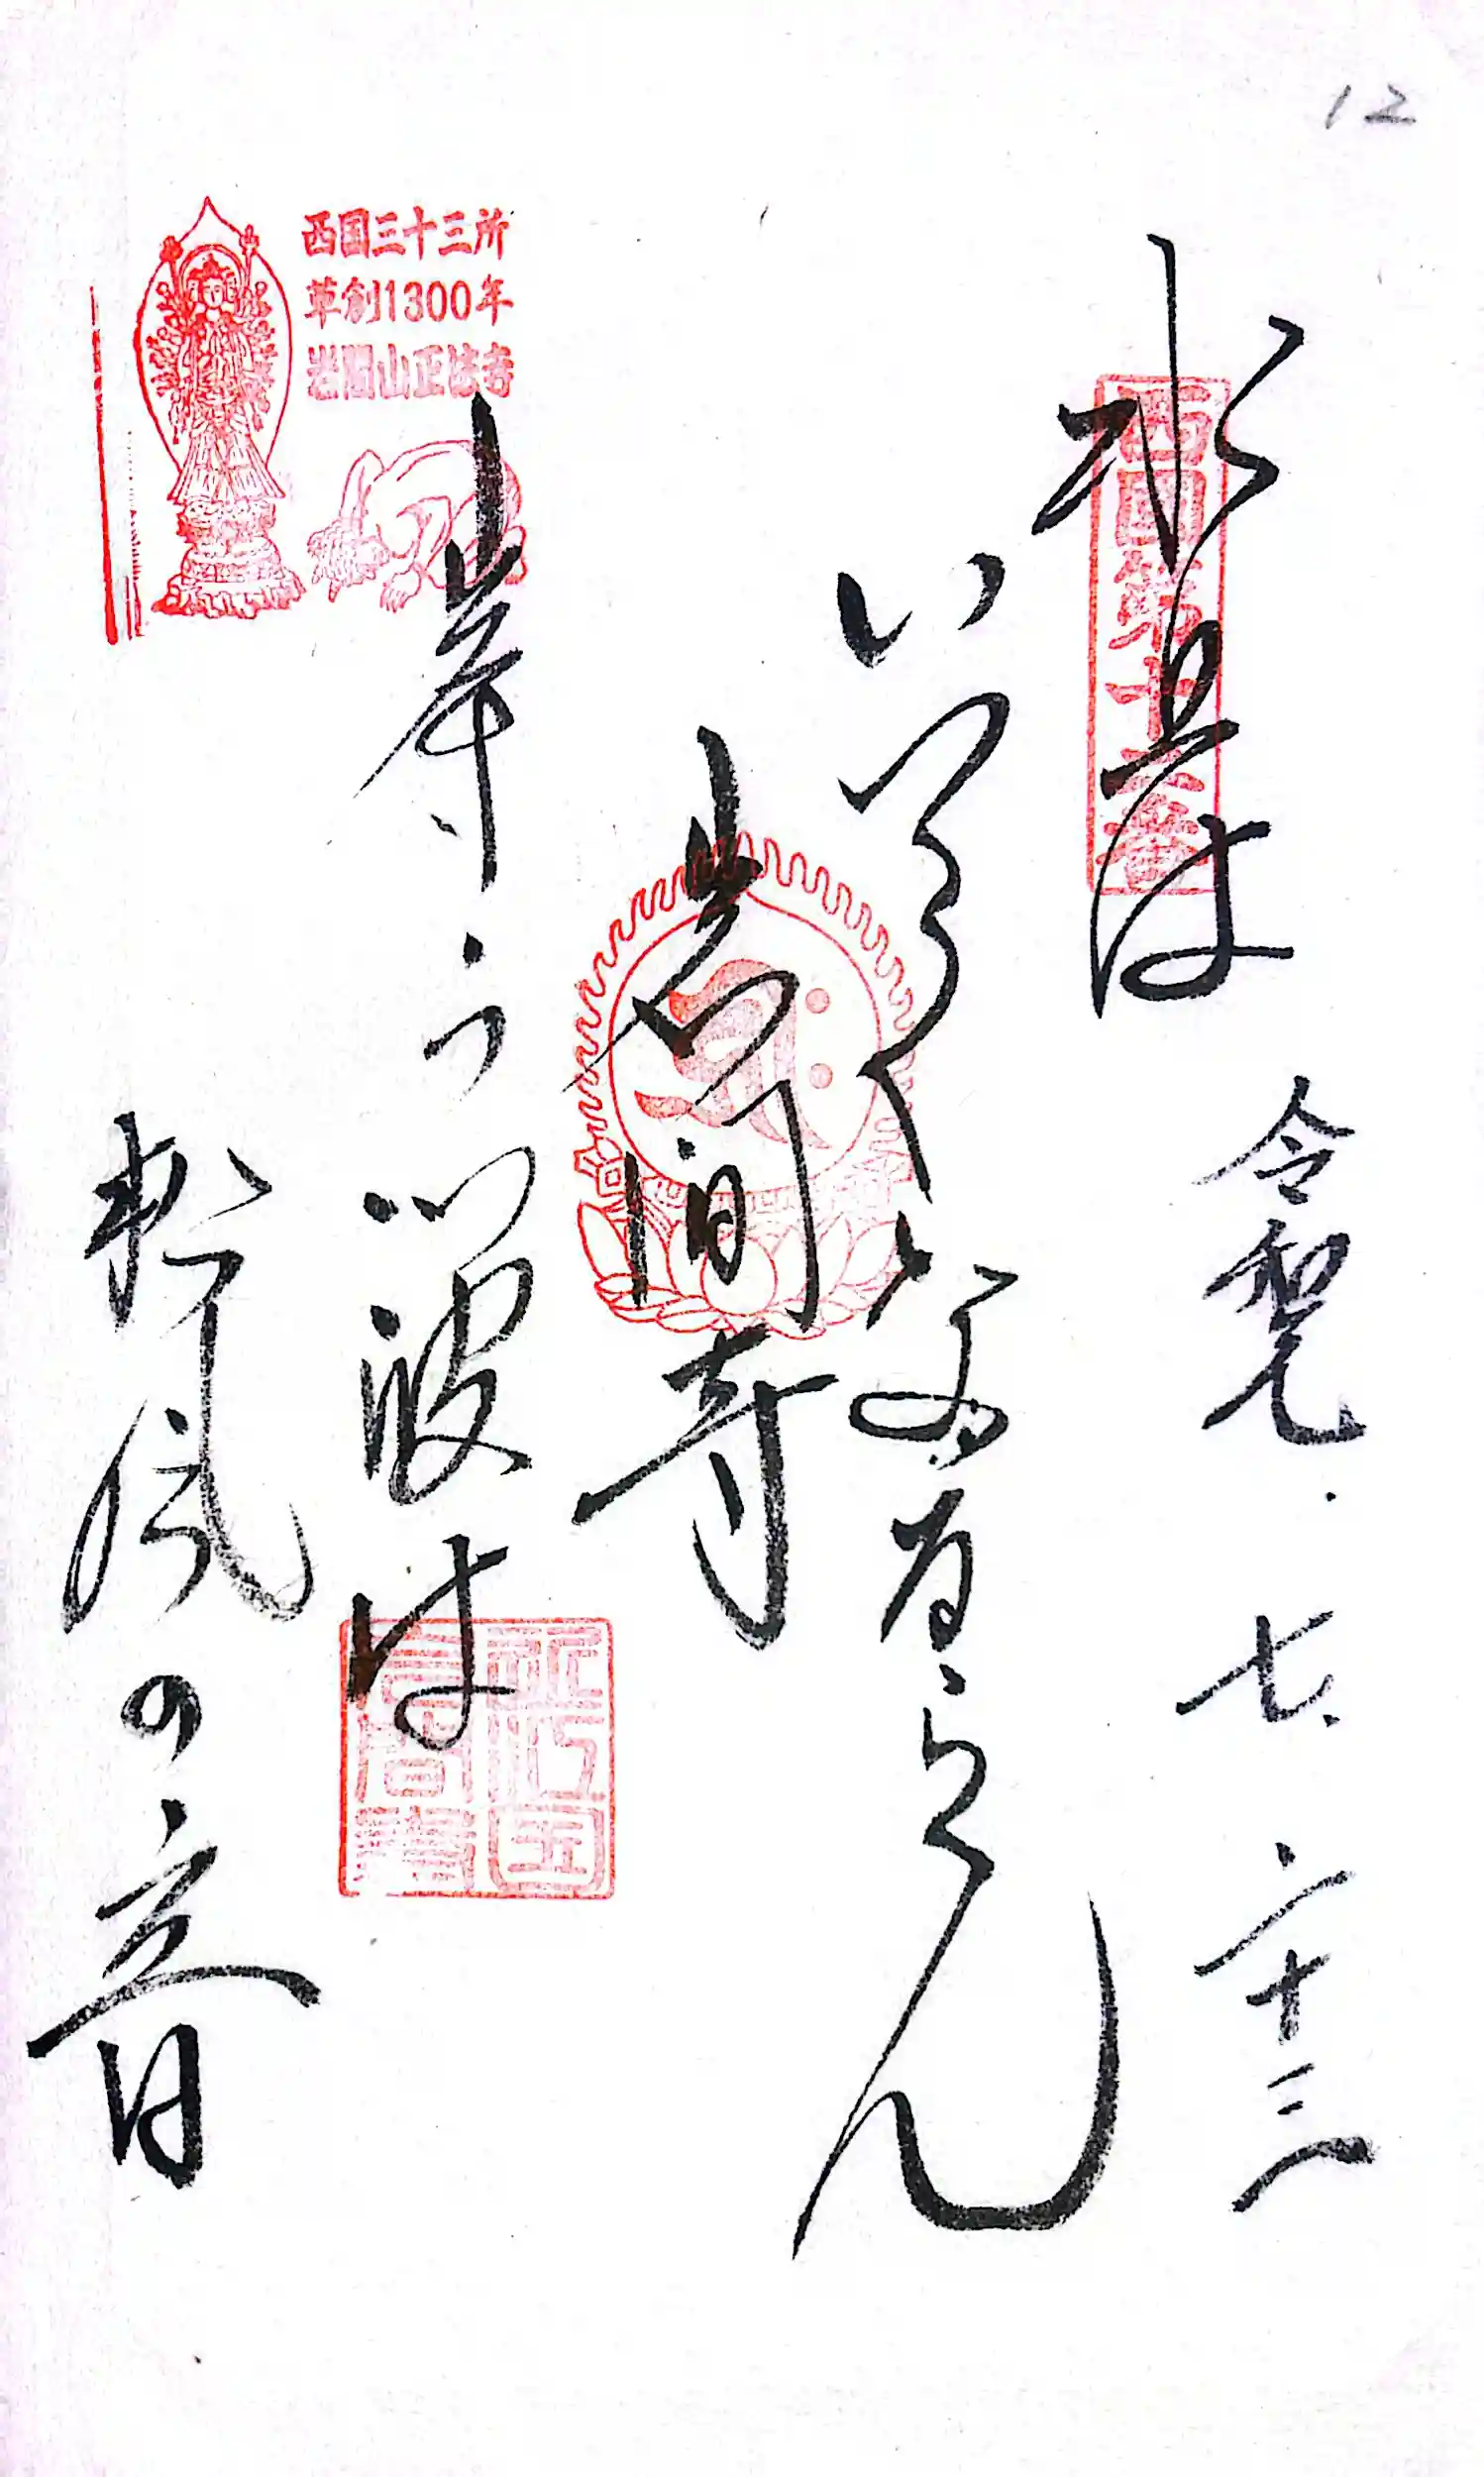 12
水上は
令和元.七.二十三
西国第十二番
いつくなるらん
岩間寺
岸うつ波は
松風の音
西国三十三所
草創1300年
岩間山正法寺